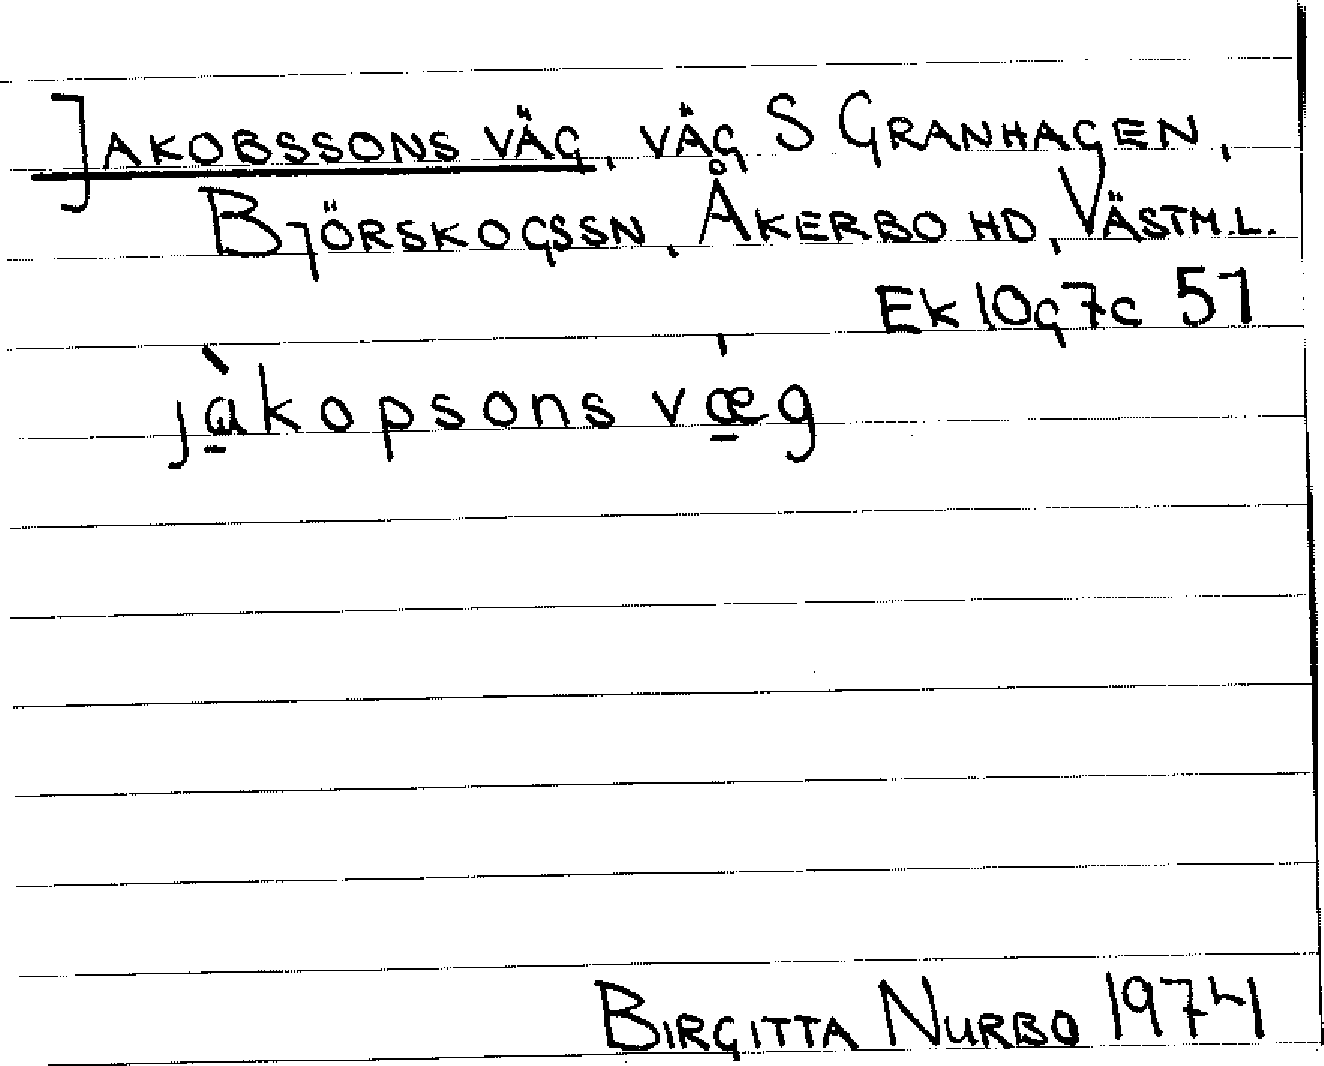 JAKOBSSONS VÄG, VÄG S GRANHAGEN,
BJÖRSKOGSSN, ÅKERBO HD, VÄSTM.L.
EK 10g7c 51
jà̱kopsons vǽ̱g
BIRGITTA NURBO 1974